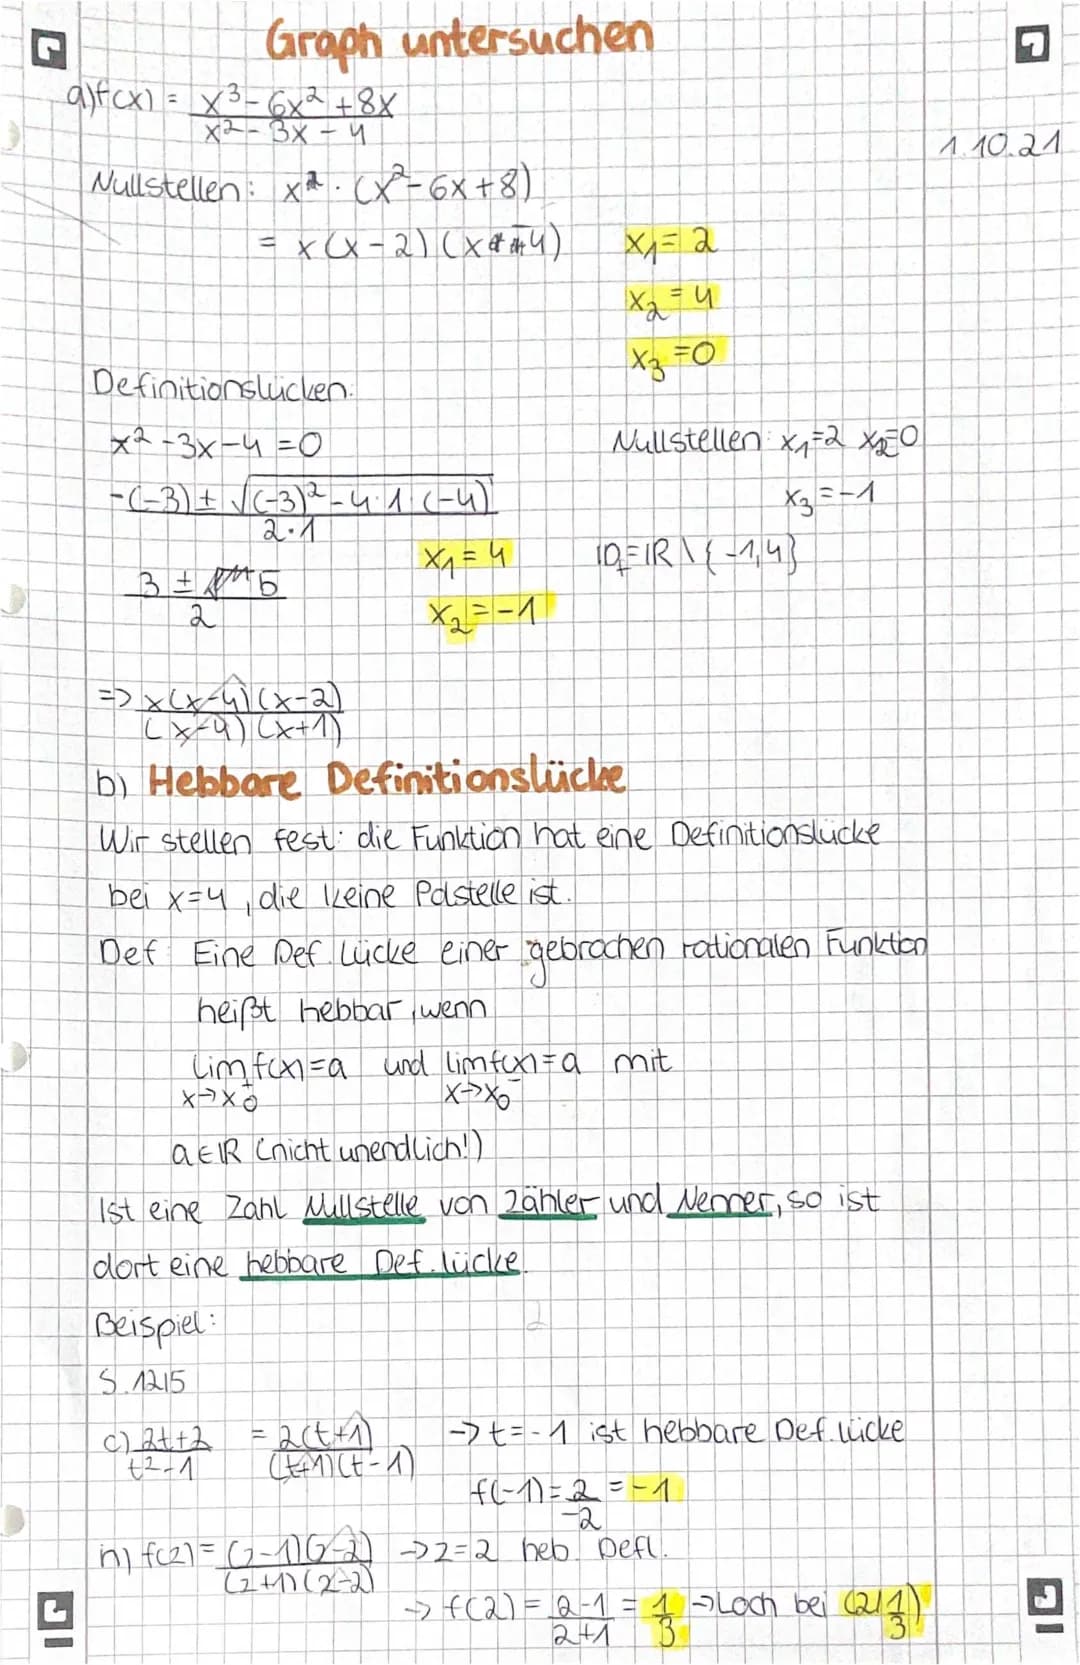 Graph untersuchen
a) f(x) = (x³ - 6x² + 8x) / (x² - 3x - 4)
1.10.21
Nullstellen: x · (x² - 6x + 8)
= x(x - 2)(x - 4) x₁ = 2
x₂ = 4
x₃ = 0
Definitionslücken:
x² - 3x - 4 = 0 Nullstellen: x₁ = 2 x₂ = 0
(-(-3) ± √((-3)² - 4·1·(-4))) / (2·1) x₃ = -1
x₁ = 4 𝔻f = ℝ \ {-1,4}
(3 ± 5) / 2 x₂ = -1
=> x(x-4)(x-2) / (x-4)(x+1)
b) Hebbare Definitionslücke
Wir stellen fest: die Funktion hat eine Definitionslücke
bei x=4, die keine Polstelle ist.
Def: Eine Def. Lücke einer gebrochen rationalen Funktion
heißt hebbar, wenn
lim f(x) = a und lim f(x) = a mit
x→x₀⁺ x→x₀⁻
a ∈ ℝ (nicht unendlich!)
Ist eine Zahl Nullstelle von Zähler und Nenner, so ist
dort eine hebbare Def. lücke.
Beispiel:
S. 12/5
c) (2t+2) / (t²-1) = 2(t+1) / (t+1)(t-1) → t = -1 ist hebbare Def. lücke
f(-1) = 2/-2 = -1
n) f(z) = (z-1)(z-2) / (z+1)(z-2) → z=2 heb. Defl.
→ f(2) = (2-1)/(2+1) = 1/3 → Loch bei (2|1/3)